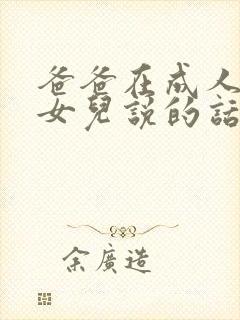 爸爸在成人
女兒說的話
余廣造